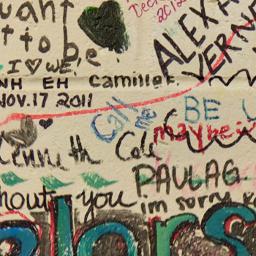 want
to be
I ♡ WE!
NH EH Camille
NOV. 17 2011
Dec
2012
ALEXA
VERN
Call
me
BE
maybe
Kenneth Co
PAULAG
hout you
im sorry
olors